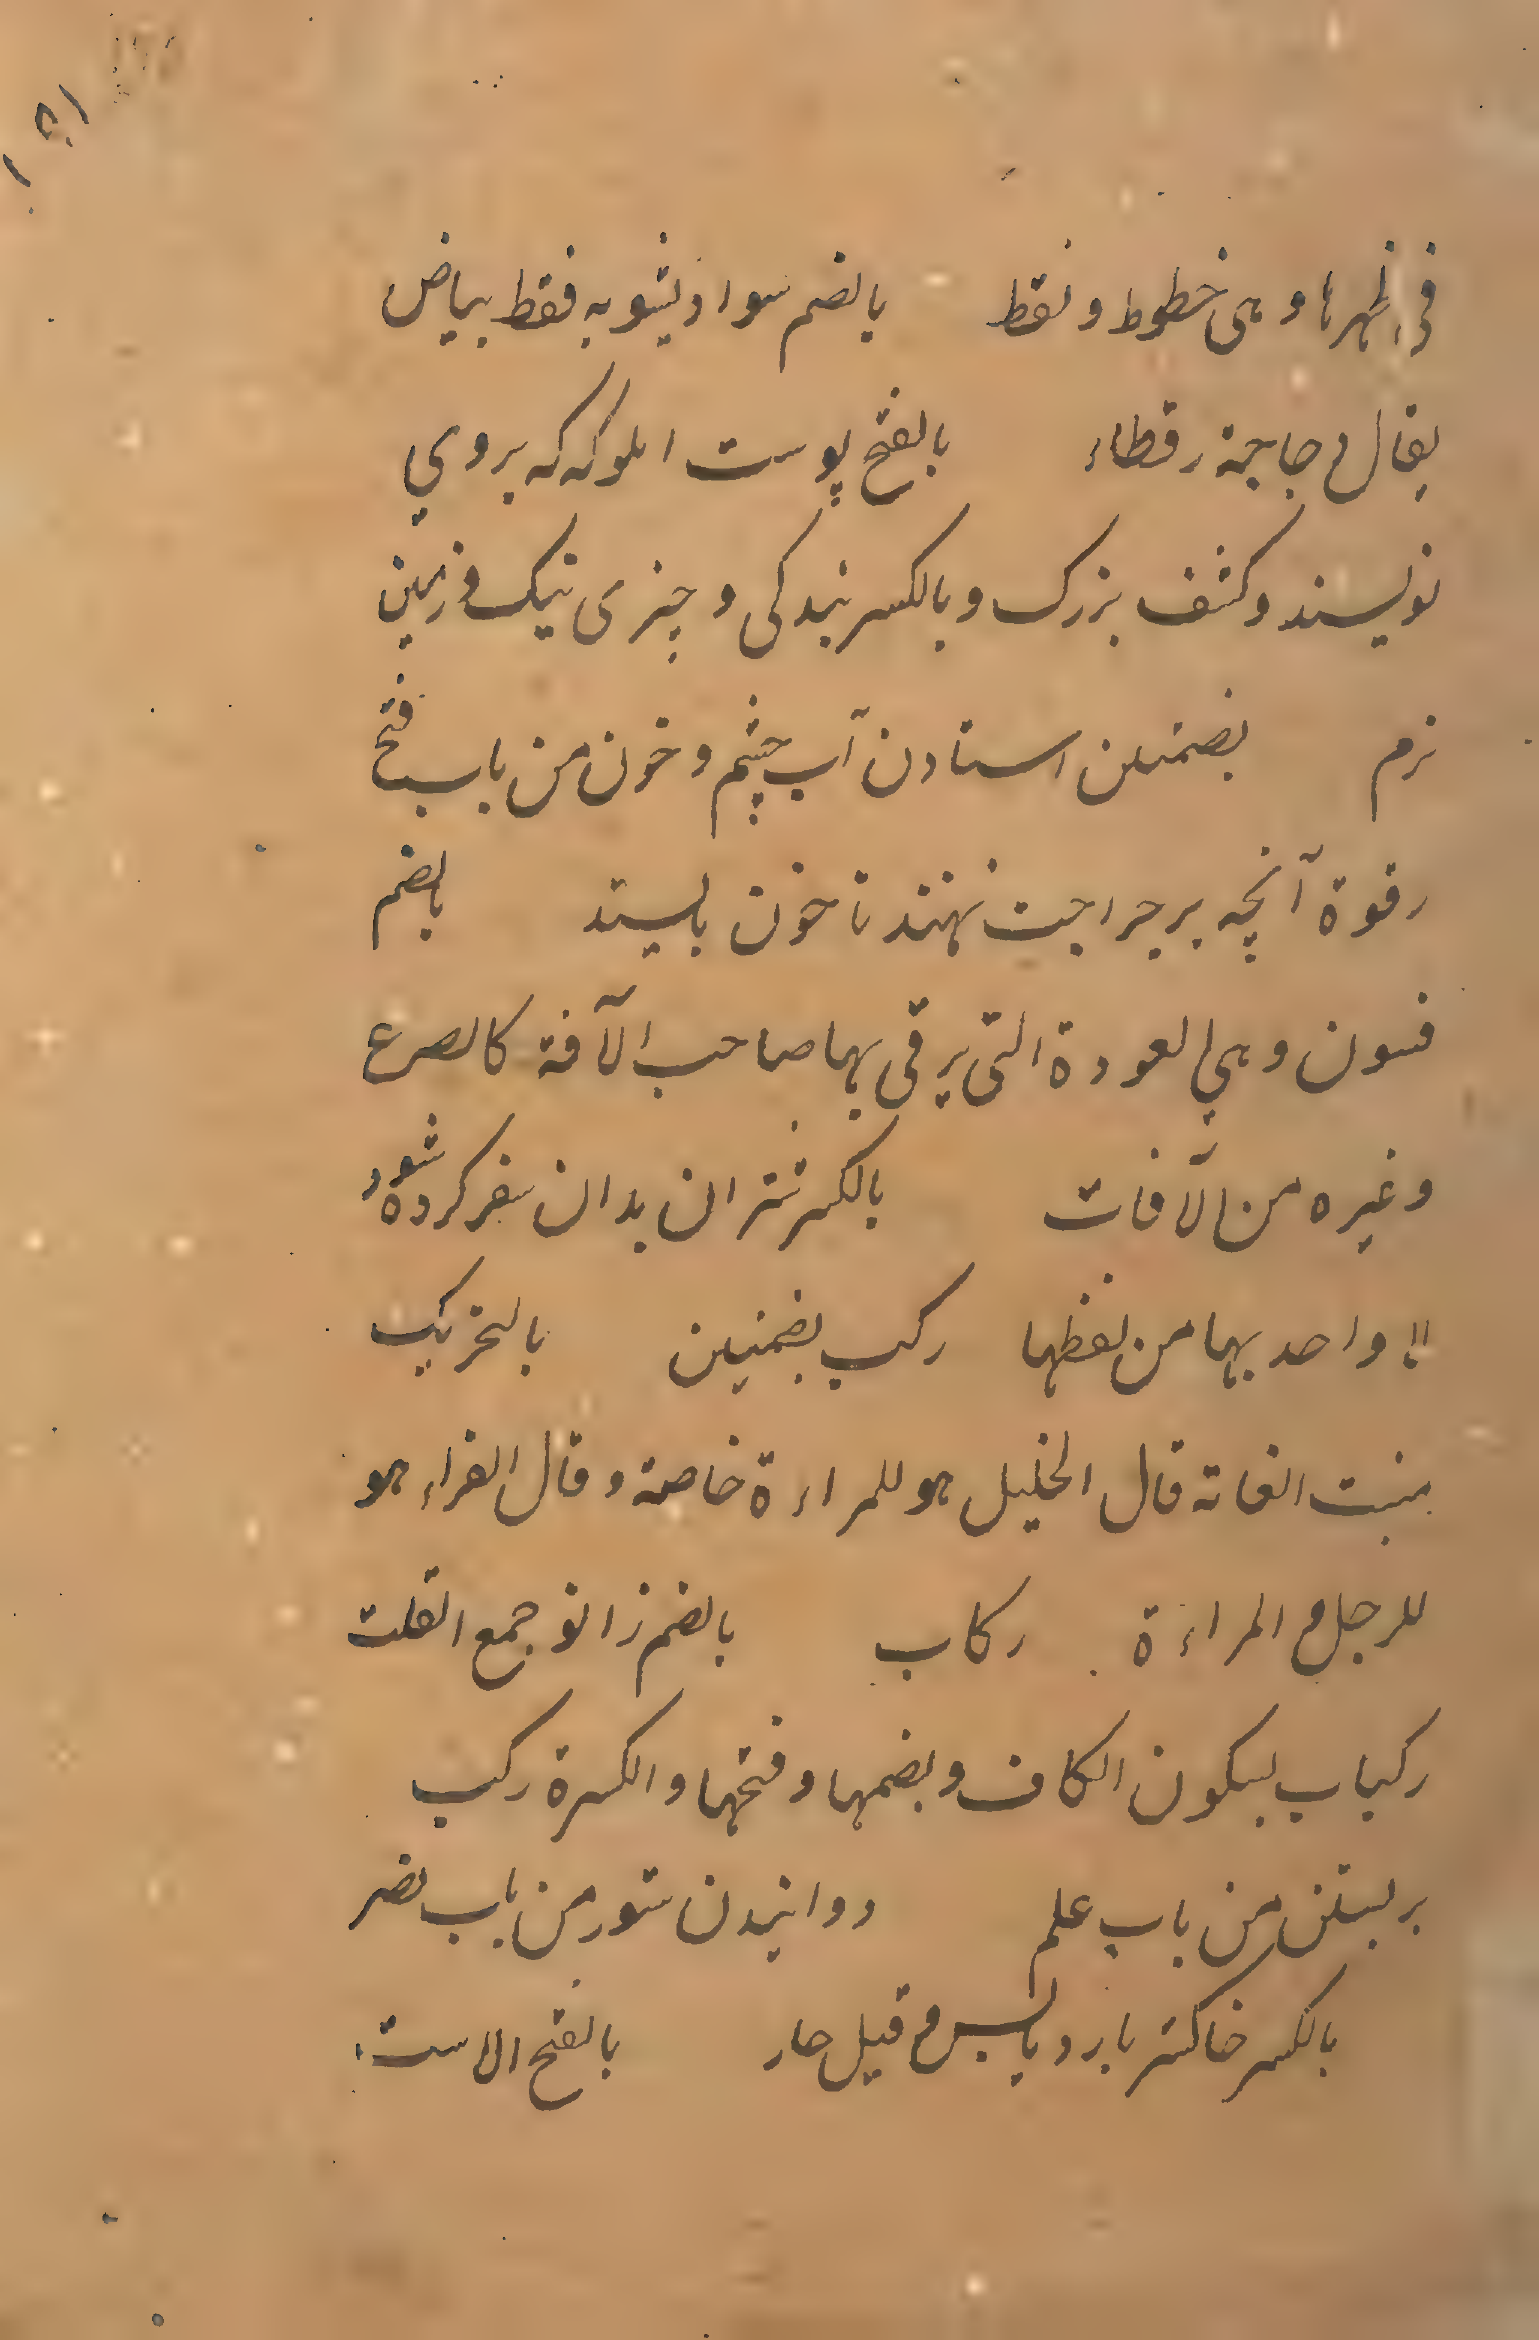 فی ظهرها و هی خطوط و نقط بالضم سواد یشوبه فقط بیاض
یقال دجاجة رقطاء بالفتح پوست که بروي
نویسند و کشف بزرک و بالکسر بندکی و چیزی تنک و زمین
نرم بضمتین استادن آب چشم و خون من باب فتح
رقوة آنچه بر جراحت نهند تا خون بایستد بالضم
فسون و هي العوذة التی یرقی بها صاحب الآفة کالصرع
و غیره من الآفات بالکسر شتران بدان سفر کرده شود و
لا واحد بها من لفظها رکب بضمتین بالتحریک
منبت العانة قال الخلیل هو للمراءة خاصة و قال الفراء هو
للرجل و المراءة رکاب بالضم زانو جمع القلت
رکبات بسکون الکاف و بضمها و فتحها و الکسرة رکب
بر نشستن من باب علم دوانیدن ستور من باب نصر
بالکسر خاکستر بارد یابس و قیل حار بالفتح الاست